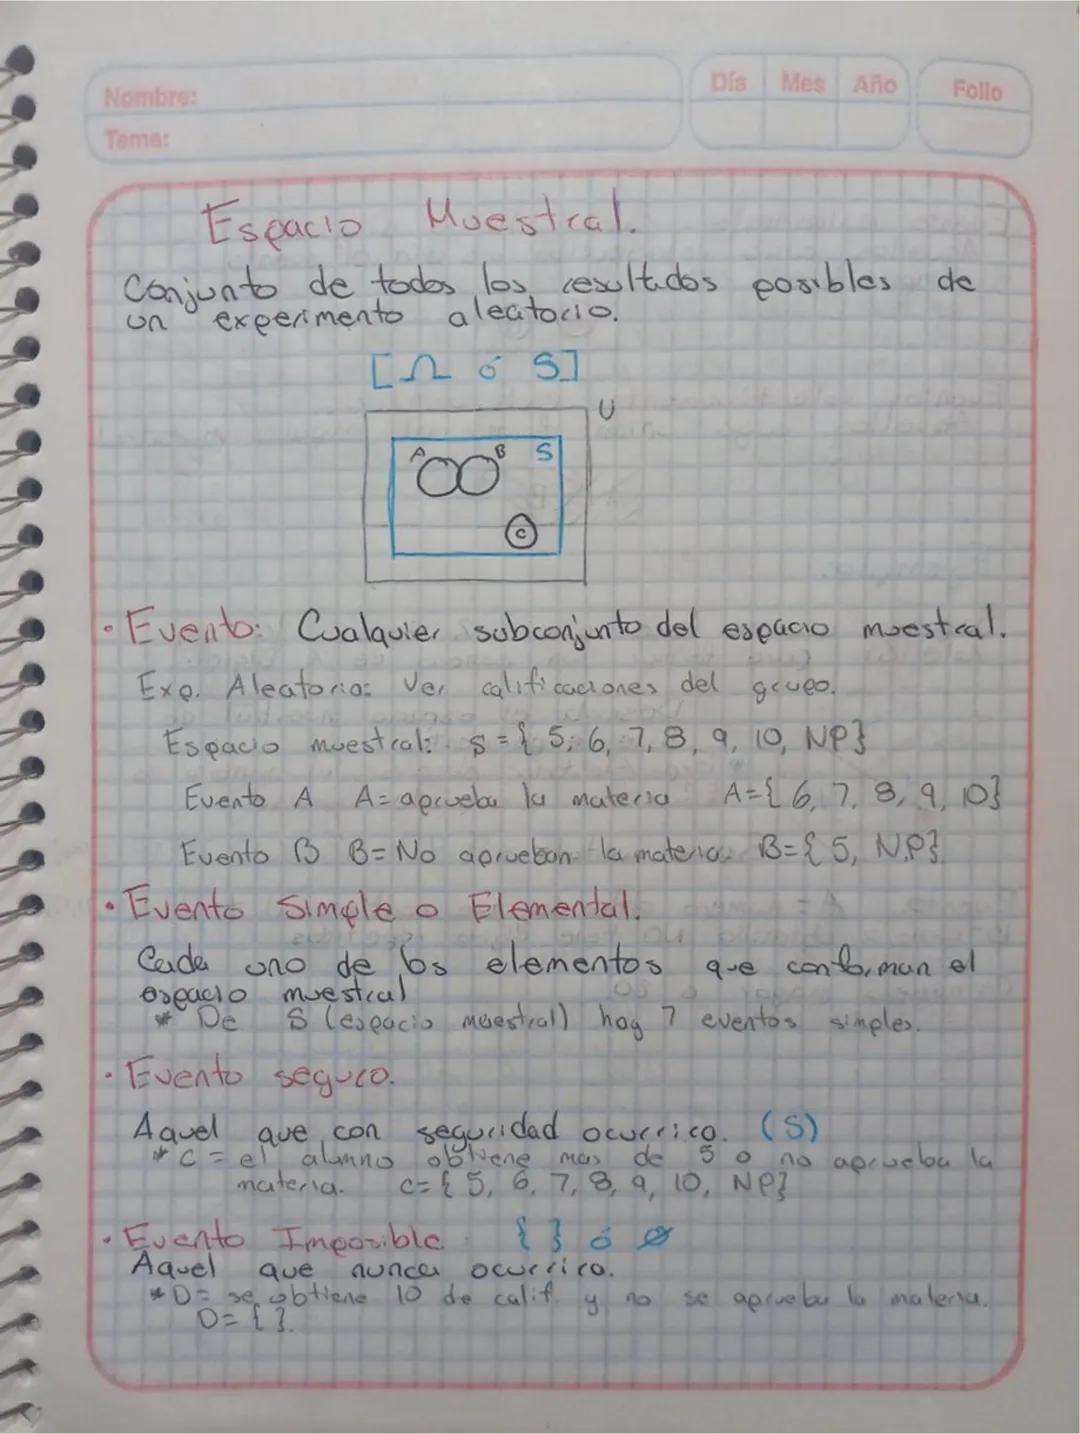 Nombre:
Día Mes Año
Folio
Tema:
Espacio Muestral.
Conjunto de todos los resultados posibles de
un experimento aleatorio.
[Ω ó S]
U
A B S
C
• Evento: Cualquier subconjunto del espacio muestral.
Exp. Aleatorio: Ver calificaciones del grupo.
Espacio muestral: S = { 5, 6, 7, 8, 9, 10, NP}
Evento A A= aprueba la materia A={ 6, 7, 8, 9, 10}
Evento B B= No aprueban la materia. B={ 5, N.P}
• Evento Simple o Elemental.
Cada uno de los elementos que conforman el
espacio muestral
* De S (espacio muestral) hay 7 eventos simples.
• Evento seguro.
Aquel que con seguridad ocurrico. (S)
* C = el alumno obtiene mas de 5 o no aprueba la
materia. C= { 5, 6, 7, 8, 9, 10, NP}
• Evento Imposible { } ó ∅
Aquel que nunca ocurrira.
* D= se obtiene 10 de calif. y no se aprueba la materia.
D= { }.